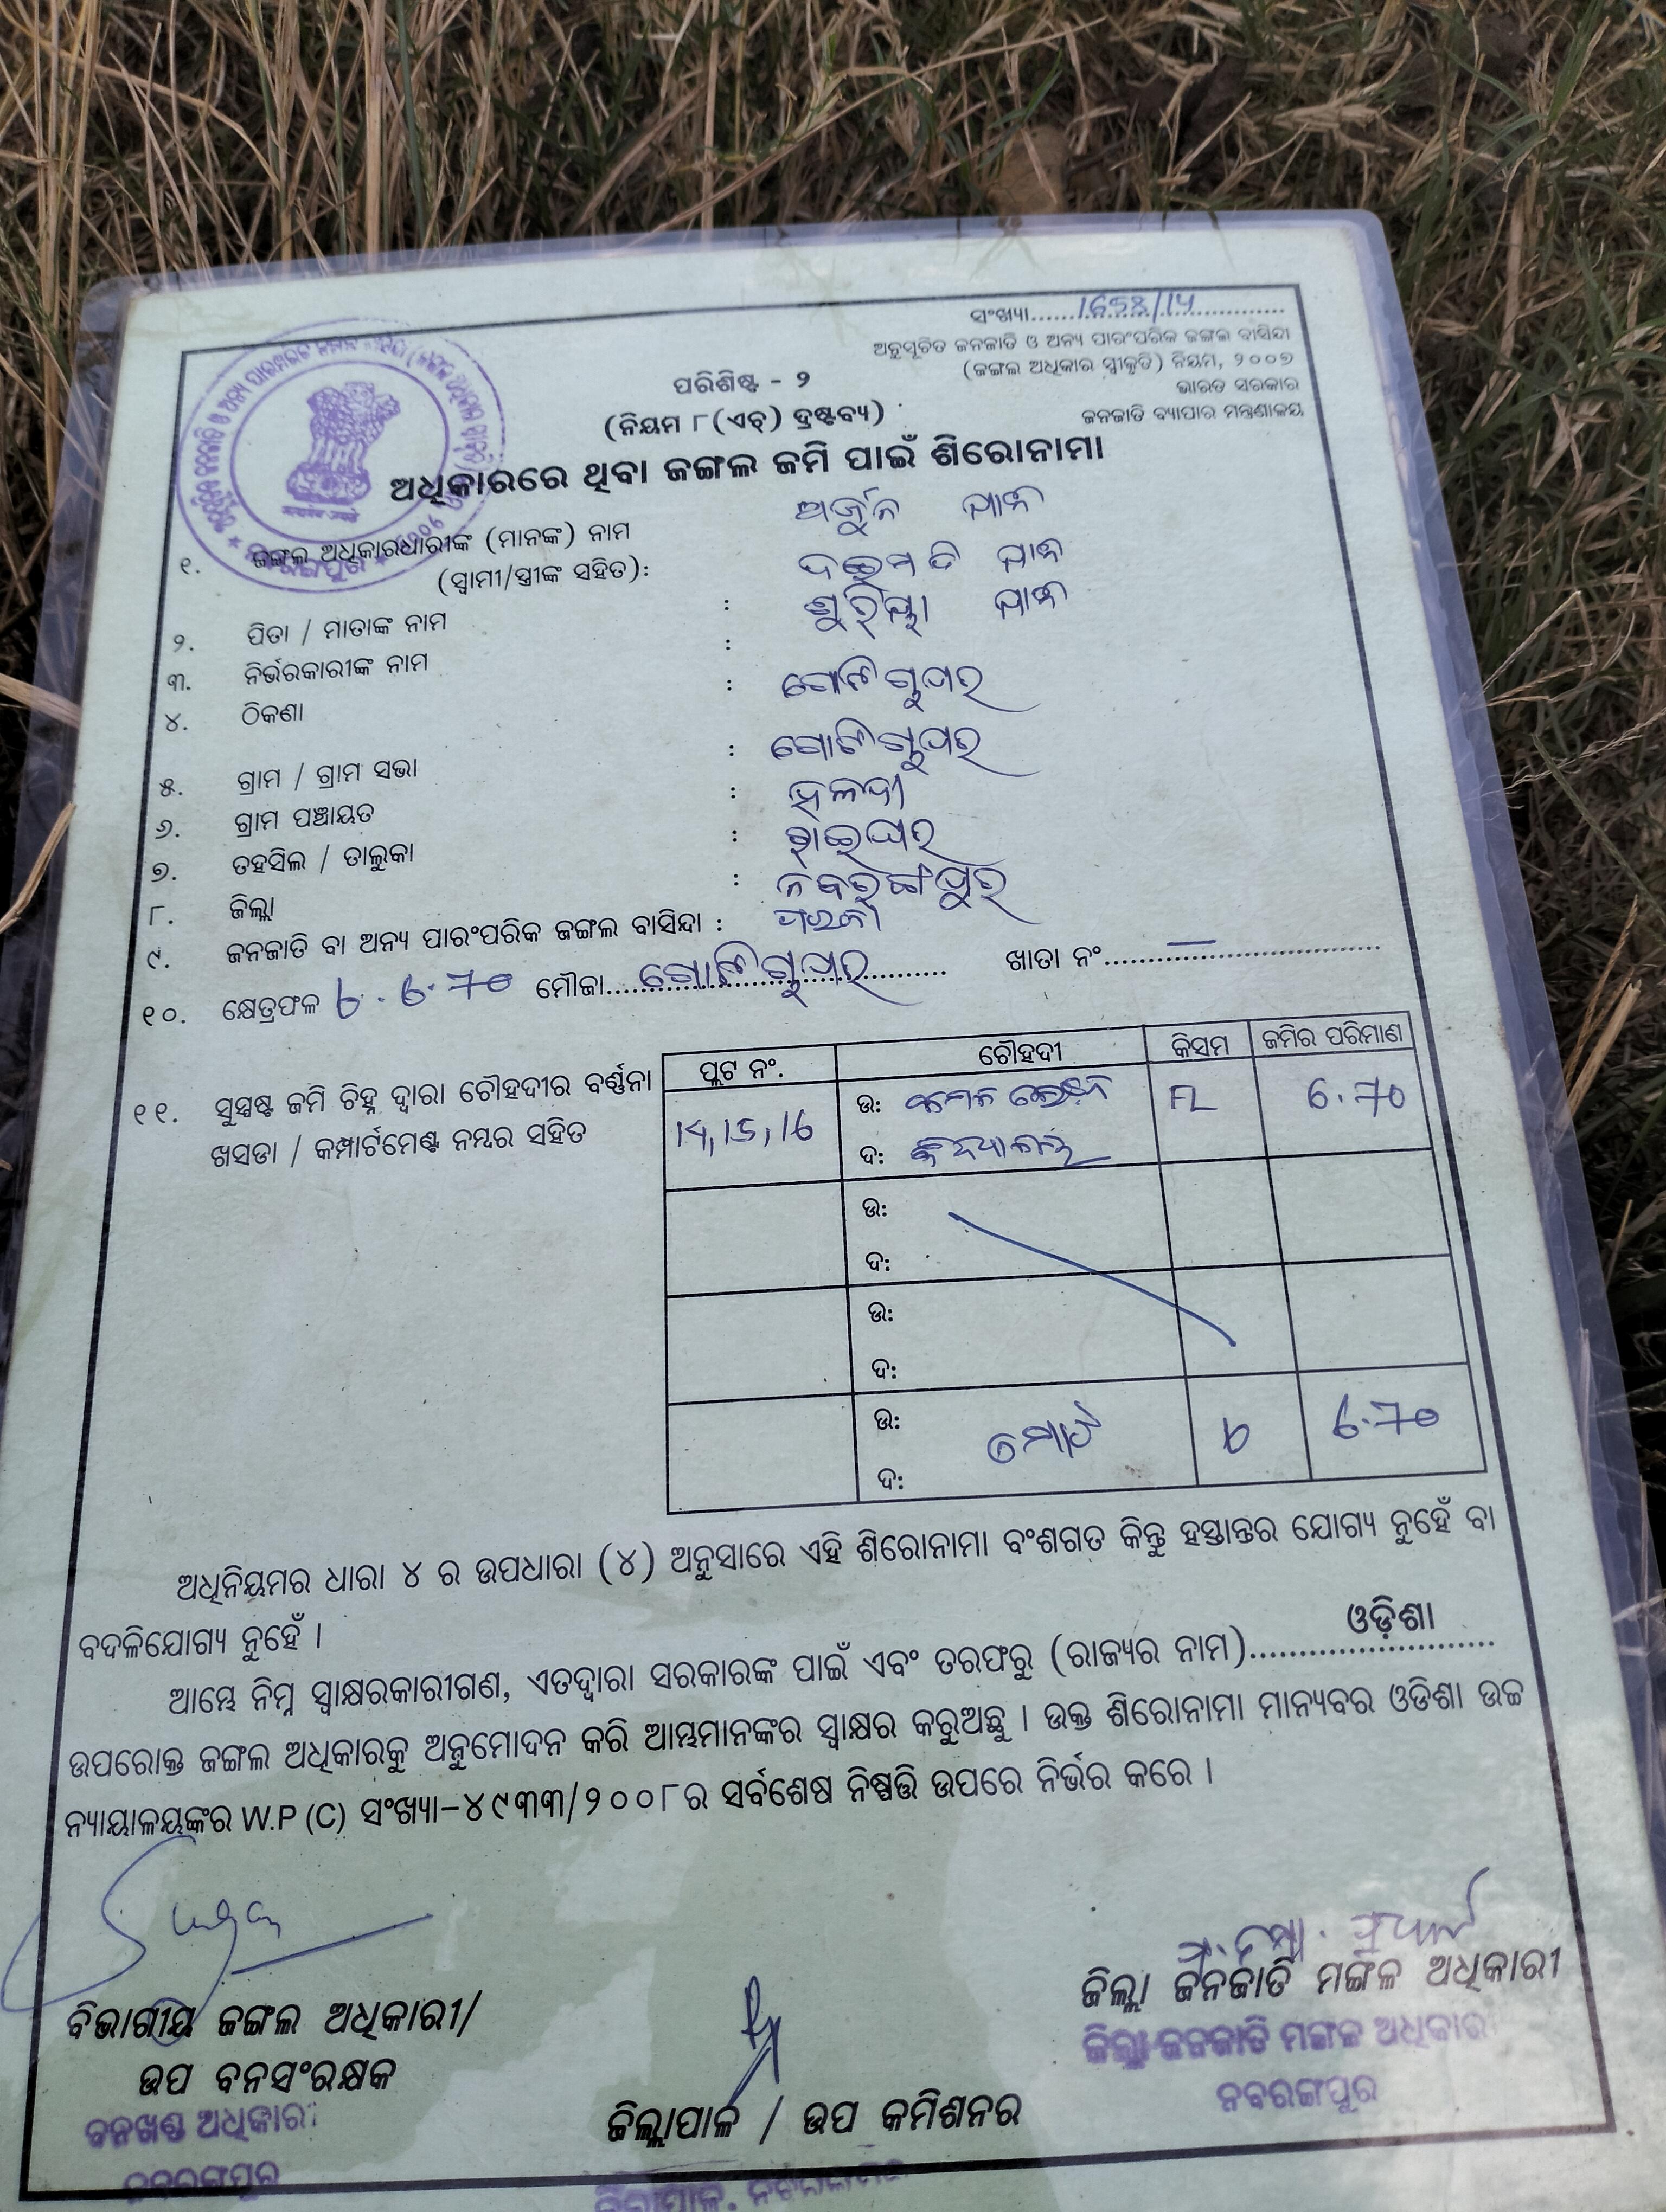 ସଂଖ୍ୟା..............................
ଅନୁସୂଚିତ ଜନଜାତି ଓ ଅନ୍ୟ ପାରଂପରିକ ଜଙ୍ଗଲ ବାସିନ୍ଦା
(ଜଙ୍ଗଲ ଅଧିକାର ସ୍ୱୀକୃତି) ନିୟମ, ୨୦୦୭
ଭାରତ ସରକାର
ଜନଜାତି ବ୍ୟାପାର ମନ୍ତ୍ରଣାଳୟ
ପରିଶିଷ୍ଟ - ୨
(ନିୟମ ୮(ଏଚ୍) ଦ୍ରଷ୍ଟବ୍ୟ)
ଅଧିକାରରେ ଥିବା ଜଙ୍ଗଲ ଜମି ପାଇଁ ଶିରୋନାମା
୧. ଜଙ୍ଗଲ ଅଧିକାରଧାରୀଙ୍କ (ମାନଙ୍କ) ନାମ ଅର୍ଜୁନ
(ସ୍ୱାମୀ/ସ୍ତ୍ରୀଙ୍କ ସହିତ):
୨. ପିତା / ମାତାଙ୍କ ନାମ :
୩. ନିର୍ଭରକାରୀଙ୍କ ନାମ :
୪. ଠିକଣା :
୫. ଗ୍ରାମ / ଗ୍ରାମ ସଭା :
୬. ଗ୍ରାମ ପଞ୍ଚାୟତ : ହଳଦୀ
୭. ତହସିଲ / ତାଲୁକା : ରାଇଘର
୮. ଜିଲ୍ଲା : ନବରଙ୍ଗପୁର
୯. ଜନଜାତି ବା ଅନ୍ୟ ପାରଂପରିକ ଜଙ୍ଗଲ ବାସିନ୍ଦା :
୧୦. କ୍ଷେତ୍ରଫଳ 6.70 ମୌଜା.............................. ଖାତା ନଂ — ..............................
୧୧. ସୁସ୍ପଷ୍ଟ ଜମି ଚିହ୍ନ ଦ୍ୱାରା ଚୌହଦୀର ବର୍ଣ୍ଣନା
ଖସଡା / କମ୍ପାର୍ଟମେଣ୍ଟ ନମ୍ବର ସହିତ
ପ୍ଲଟ ନଂ. ଚୌହଦୀ କିସମ ଜମିର ପରିମାଣ
14,15,16 ଉଃ FL 6.70
ଦଃ
ଉଃ
ଦଃ
ଉଃ
ଦଃ
ଉଃ ମୋଟ 6.70
ଦଃ
ଅଧିନିୟମର ଧାରା ୪ ର ଉପଧାରା (୪) ଅନୁସାରେ ଏହି ଶିରୋନାମା ବଂଶଗତ କିନ୍ତୁ ହସ୍ତାନ୍ତର ଯୋଗ୍ୟ ନୁହେଁ ବା
ବଦଳିଯୋଗ୍ୟ ନୁହେଁ ।
ଆମ୍ଭେ ନିମ୍ନ ସ୍ୱାକ୍ଷରକାରୀଗଣ, ଏତଦ୍ଦ୍ୱାରା ସରକାରଙ୍କ ପାଇଁ ଏବଂ ତରଫରୁ (ରାଜ୍ୟର ନାମ)......ଓଡ଼ିଶା......
ଉପରୋକ୍ତ ଜଙ୍ଗଲ ଅଧିକାରକୁ ଅନୁମୋଦନ କରି ଆମ୍ଭମାନଙ୍କର ସ୍ୱାକ୍ଷର କରୁଅଛୁ । ଉକ୍ତ ଶିରୋନାମା ମାନ୍ୟବର ଓଡିଶା ଉଚ୍ଚ
ନ୍ୟାୟାଳୟଙ୍କର W.P (C) ସଂଖ୍ୟା-୪୯୩୩/୨୦୦୮ର ସର୍ବଶେଷ ନିଷ୍ପତ୍ତି ଉପରେ ନିର୍ଭର କରେ ।
ବିଭାଗୀୟ ଜଙ୍ଗଲ ଅଧିକାରୀ/
ଉପ ବନସଂରକ୍ଷକ
ବନଖଣ୍ଡ ଅଧିକାରୀ
ନବରଙ୍ଗପୁର
ଜିଲ୍ଲାପାଳ / ଉପ କମିଶନର
ଜିଲ୍ଲା ଜନଜାତି ମଙ୍ଗଳ ଅଧିକାରୀ
ଜିଲ୍ଲା ଜନଜାତି ମଙ୍ଗଳ ଅଧିକାରୀ
ନବରଙ୍ଗପୁର